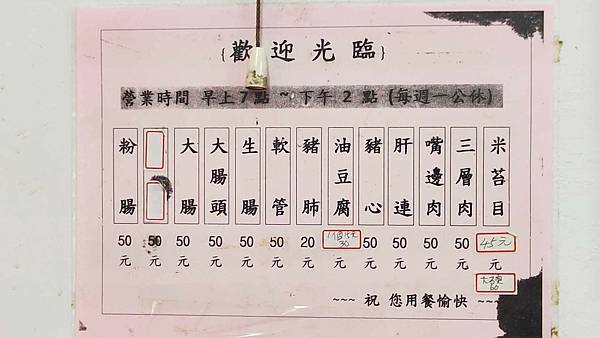 {歡迎光臨}
營業時間 早上7點 ~ 下午 2 點 (每週一公休)
米苔目 45元 元
大碗 60
三層肉 50元
嘴邊肉 50元
肝連 50元
豬心 50元
油豆腐 1個15元 30 元
豬肺 20元
軟管 50元
生腸 50元
大腸頭 50元
大腸 50元
50元
粉腸 50元
~~~ 祝 您用餐愉快 ~~~